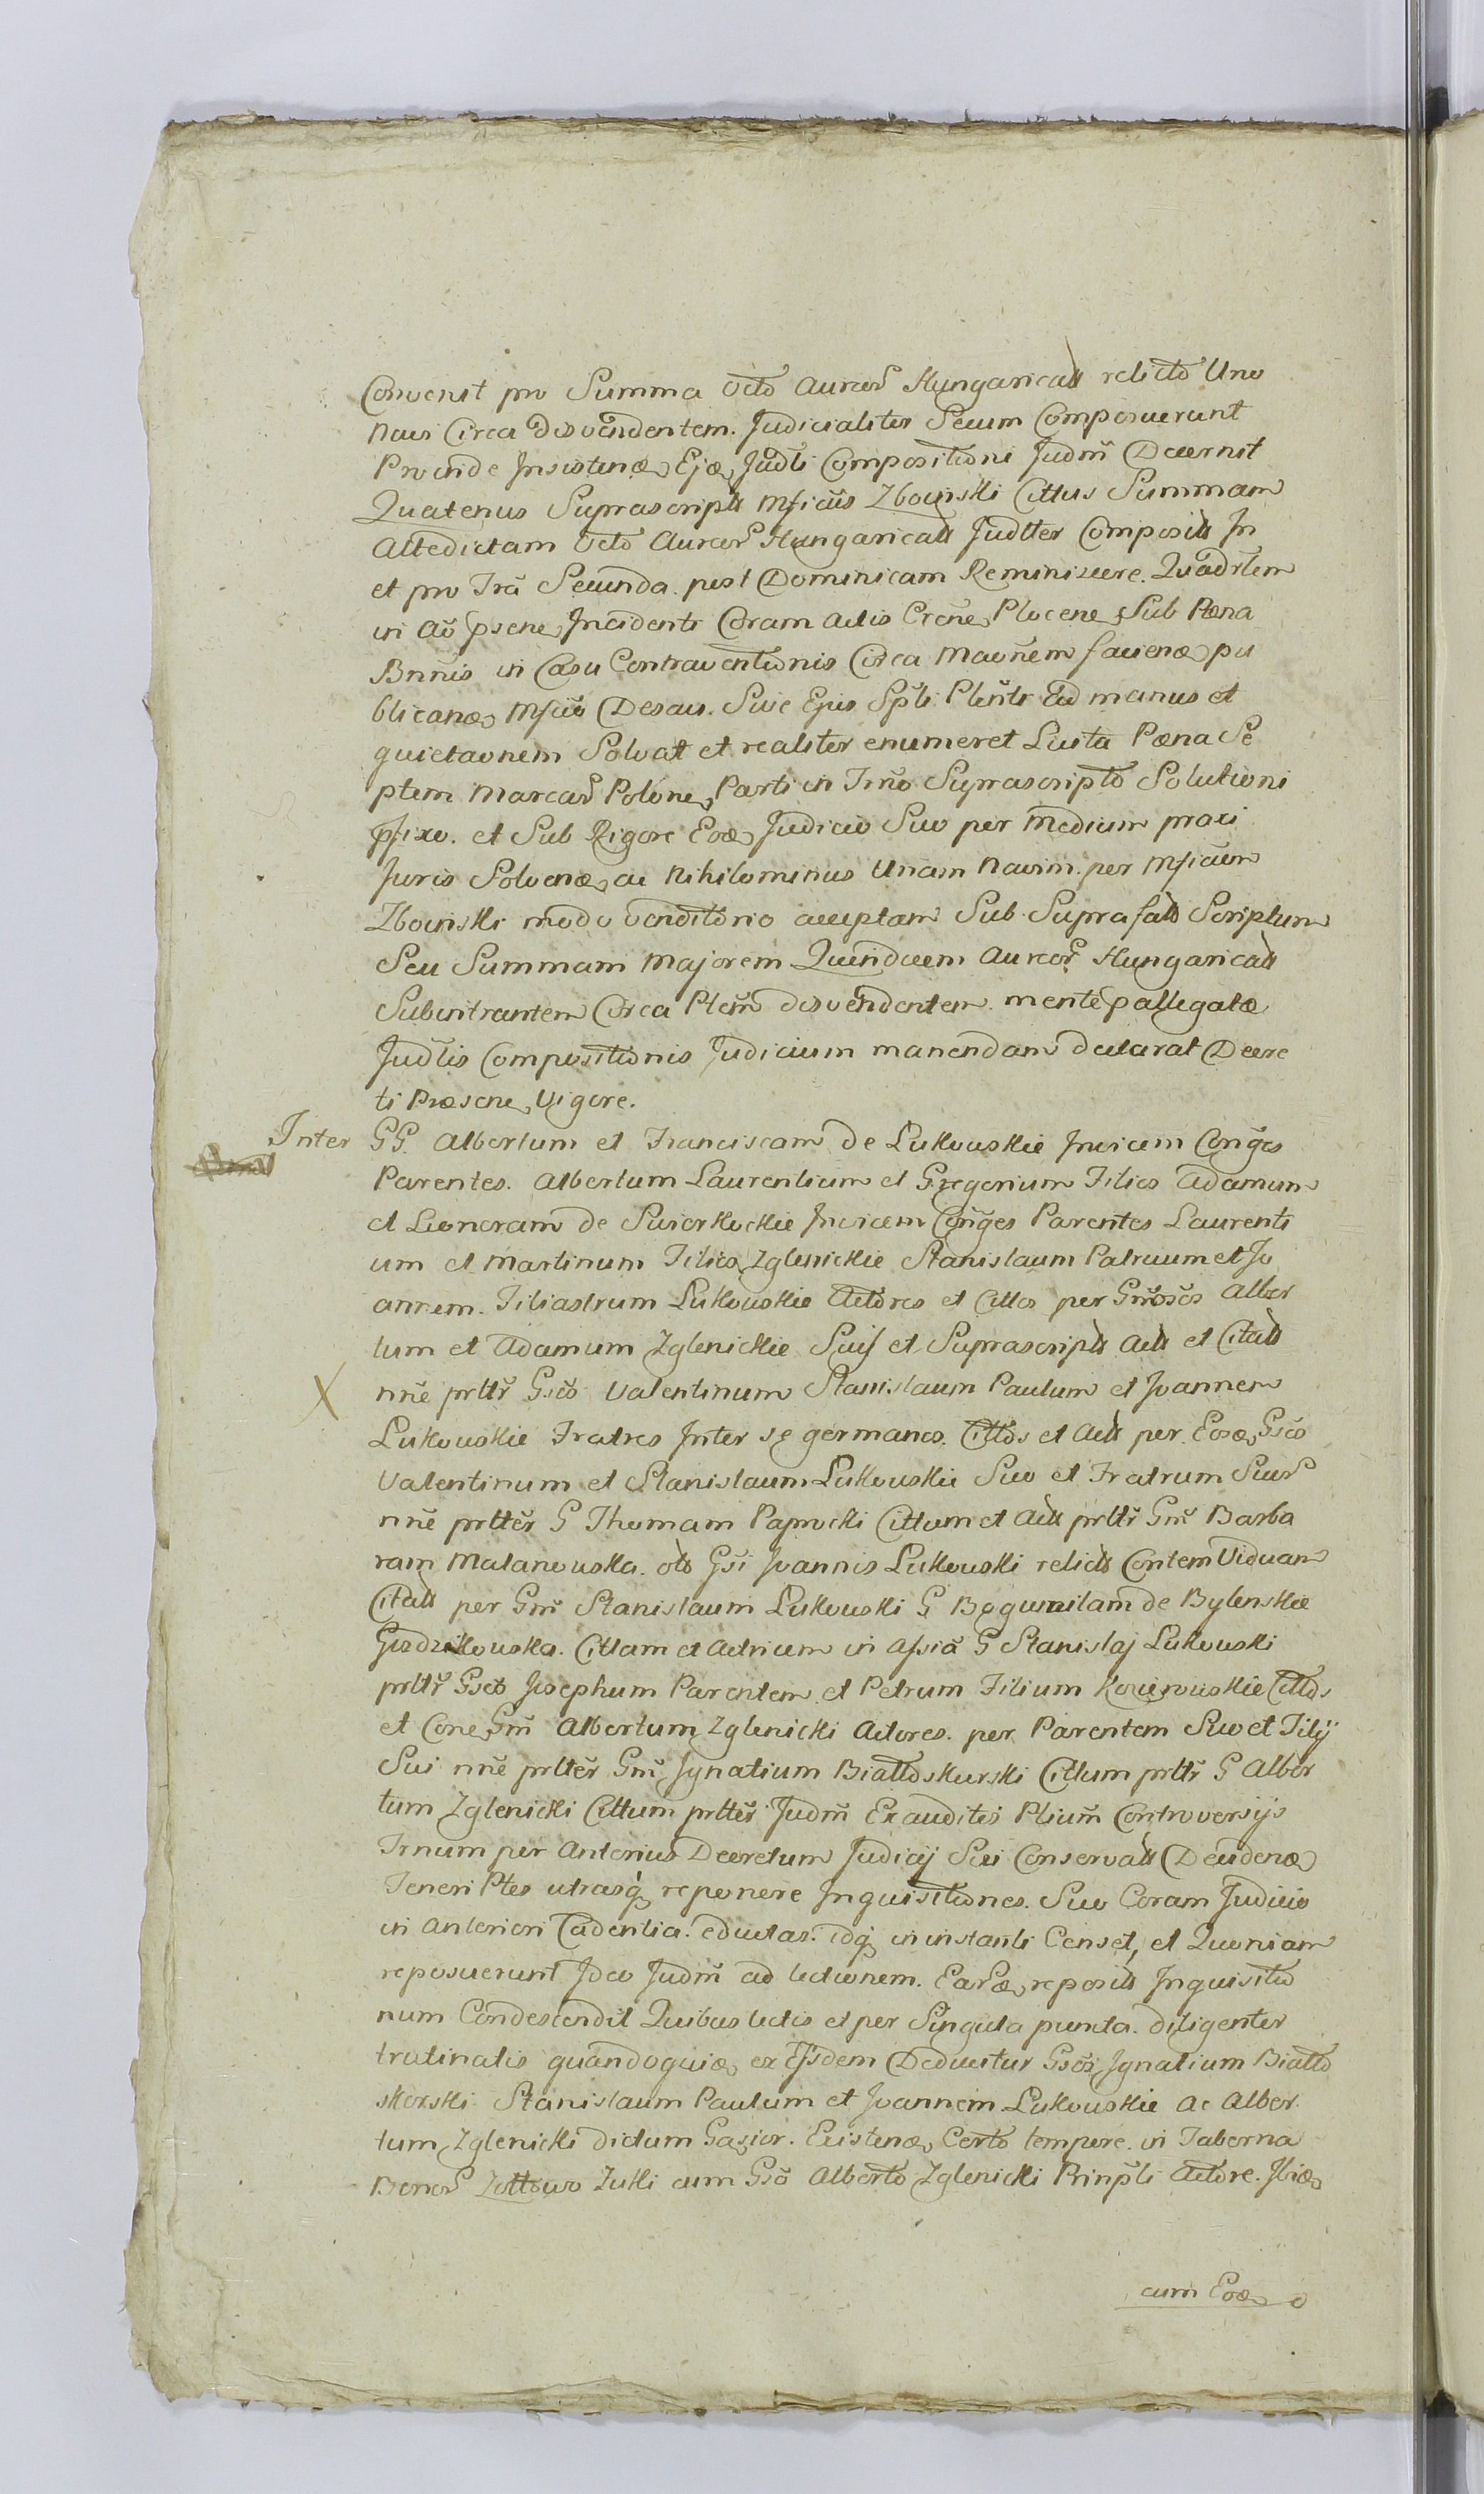 Convenit pro Summa Octo Aureor Hungaricali relicto Uno
Naui Circa desvendentem. Judicialiter Secum Composuerunt
Proinde Insistendo Ejdo Judli Compositioni Judm Decernit
Quatenus Suprascripts Mficus Zboinski Cittus Summam
Altedictam Octo Aureor Hungaricals Judlter Composits In
et pro Fra Secunda post Dominicam Reminiscere. Quadrlem
in Ao psene Incidenti Coram Actis Crene Plocene Sub Pæna
Bnnis in Casu Contraventionis Circa Maonem faciendo pu
blicando Mfico Desais. Sive Ejus Spli Plenti Ad manus et
quietaonem Solvat et realiter enumeret Luita Pæna Se
ptem Marcar Polone Parti in Trno Suprascripto Solutioni
pfixo. et Sub Rigore Eodo Judicio Suo per Medium proxi
Juris Solvendo ac Nihilominus Unam Navim per Mficum
Zboinski modo venditorio acceptam Sub Suprafats Scriptum
Seu Summam Majorem Quindecem Aureor Hungaricals
Subintrantem Circa Ptem desvendentem mente pallegatæ
Judlis Compositionis Judicium manendam declarat Decre
ti Præsene Vigore.
Inter GG. Albertum et Franciscam de Lukowskie Invicem Conges
Parentes. Albertum Laurentium et Gregorium Filios Adamum
et Leonoram de Swierkockie Invicem Conges Parentes Laurenti
um et Martinum Filios Zglenickie Stanislaum Patruum et Jo
annem. Filiastrum Lukowskie Actores et Cittos per Gnrosos Alber
tum et Adamum Zglenickie Suis et Suprascripts Acts et Citats
nne prlltr Gsos Valentinum Stanislaum Paulum et Joannem
Lukowskie Fratres Inter se germanos. Cittos et Acts per Eosdo Gsos
Valentinum et Stanislaum Lukowskie Suo et Fratrum Suor
nne prltter G Thomam Paprocki Cittum et Acts prlltr Gm Barba
ram Malanowska. olo Gsi Joannis Lukowski relicts Contem Viduam
Citats per Gm Stanislaum Lukowski G Bogumilam de Bylenskie
Gozdzikowska. Cittam et Actricem in Assia G Stanislaj Lukowski
prlltr Gsos Josephum Parentem et Petrum Filium Kocierowskie Cittos
et Cone Gm Albertum Zglenicki Actores. per Parentem Suo et Filij
Sui nne prltter Gm Ignatium Biattoskurski Cittum prlltr G Alber
tum Zglenicki Cittum prltter Judm Exauditis Ptium Controversijs
Trnum per Anterius Decretum Judicij Sui Conservats Decidendo
Teneri Ptes utrasq reponere Inquisitiones. Suo Coram Judicio
in Anteriori Cadentia. eductas. idq in instanti Censet, et Quoniam
reposuerunt Ideo Judm ad lectionem. Earudo reposits Inquisitio
num Condescendit Quibus lectis et per Singula puncta. diligenter
trutinatis quandoquido ex Ijsdem Deducitur Gsos Ignatium Biatto
skorski Stanislaum Paulum et Joannem Lukowskie ac Alber
tum Zglenicki dictum Gasior. Existendo Certo tempore. in Taberna
Bonor Zottowo Zukli cum Gso Alberto Zglenicki Prinpli Actore. Ibido
cum Eodo